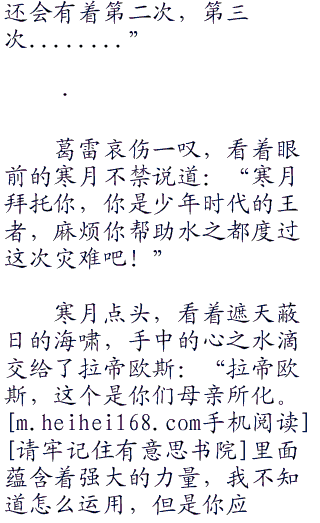 还会有着第二次，第三
次........”
.
葛雷哀伤一叹，看着眼
前的寒月不禁说道：“寒月
拜托你，你是少年时代的王
者，麻烦你帮助水之都度过
这次灾难吧！”
寒月点头，看着遮天蔽
日的海啸，手中的心之水滴
交给了拉帝欧斯：“拉帝欧
斯，这个是你们母亲所化。
[m.heihei168.com手机阅读]
[请牢记住有意思书院]里面
蕴含着强大的力量，我不知
道怎么运用，但是你应